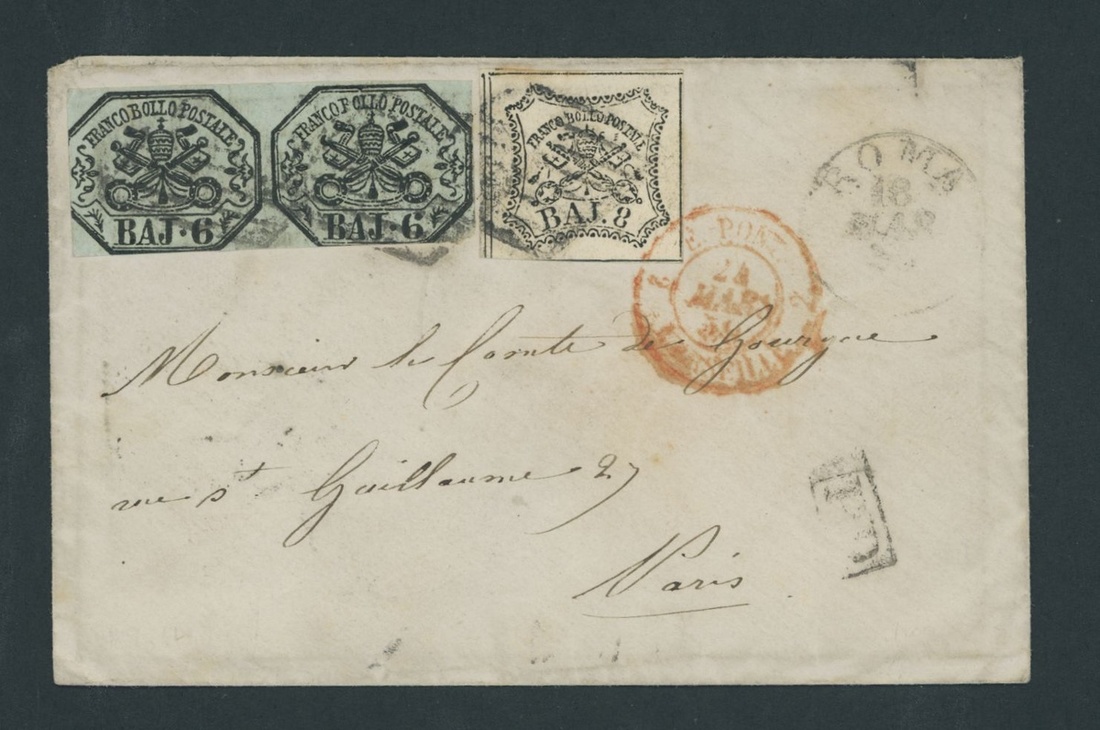 FRANCO BOLLO POSTALE
BAJ. 6
FRANCO BOLLO POSTALE
BAJ. 6
FRANCO BOLLO POSTALE
BAJ. 8
ROMA
18
MAR
E. PONT.
24
MARS
MARSEILLE
2
Monsieur le Comte de Gourgue
rue St Guillaume 27
Paris
P.D.